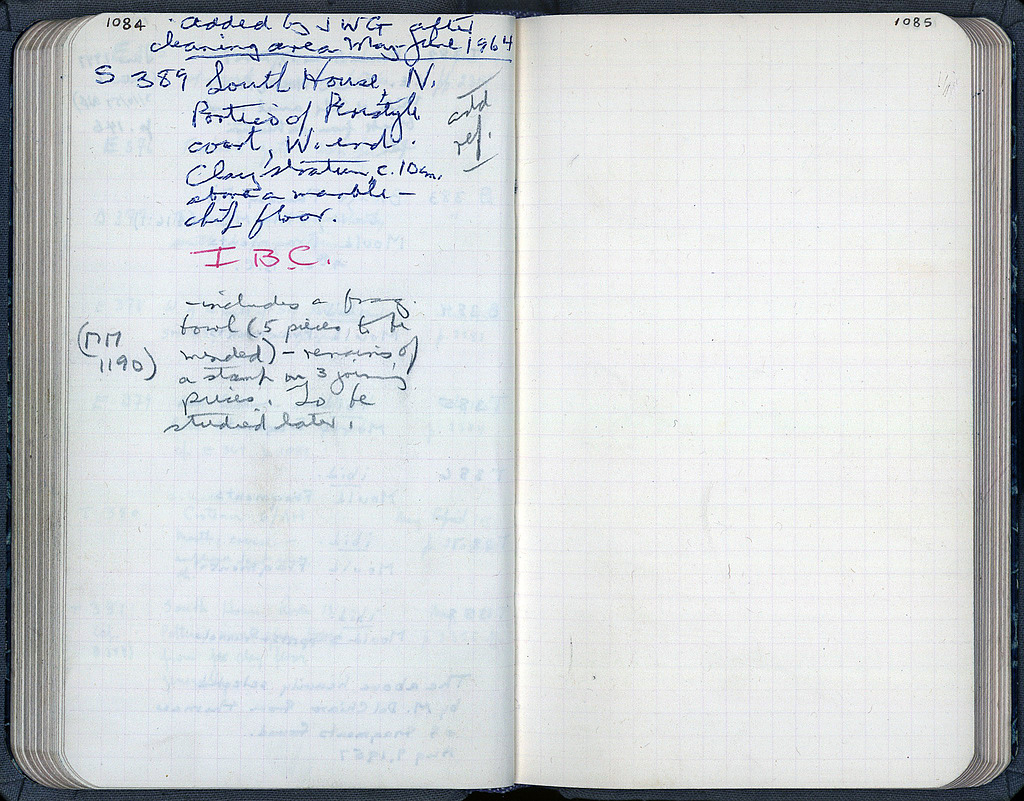 1084
added by JWG after
cleaning area May-June 1964
S 389 South House, N.
Portico of Peristyle
court, W. end.
Clay stratum, c. 10 cm.
above a marble-
chip floor.
add
ref.
I B C.
- includes a frag.
bowl (5 pieces to be
mended) - remains of
a stamp on 3 joining
pieces. To be
studied later.
(MM
1190)
1085